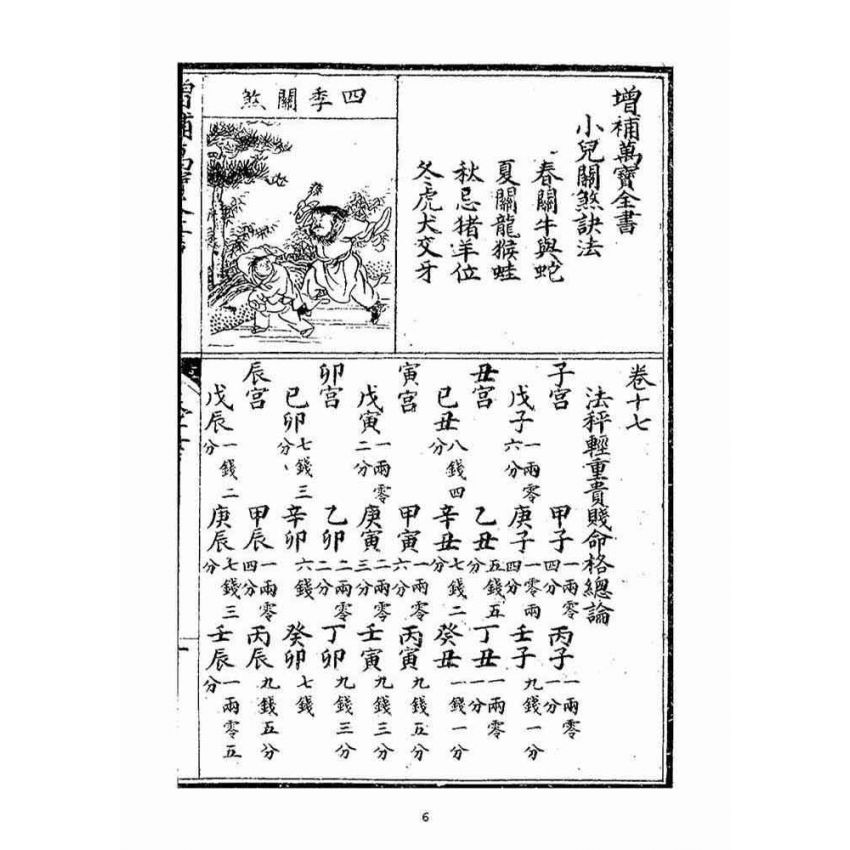 增補萬寶全書
小兒關煞訣法
春關牛與蛇
夏關龍猴蛙
秋忌猪羊位
冬虎犬交牙
四季關煞
卷十七
法秤輕重貴賤命格總論
子宮 甲子一兩零四分 丙子一兩零一分
戊子一兩零六分 庚子一零兩四分 壬子九錢一分
丑宮 乙丑五錢五分 丁丑一兩零一分
己丑八錢四分 辛丑七錢二分 癸丑一錢一分
寅宮 甲寅一兩零六分 丙寅九錢五分
戊寅一兩零二分 庚寅二兩零三分 壬寅九錢三分
卯宮 乙卯二兩零二分 丁卯九錢三分
己卯七錢三分 辛卯六錢 癸卯七錢
辰宮 甲辰一兩零四分 丙辰九錢五分
戊辰一錢二分 庚辰七錢三分 壬辰一兩零五分
6